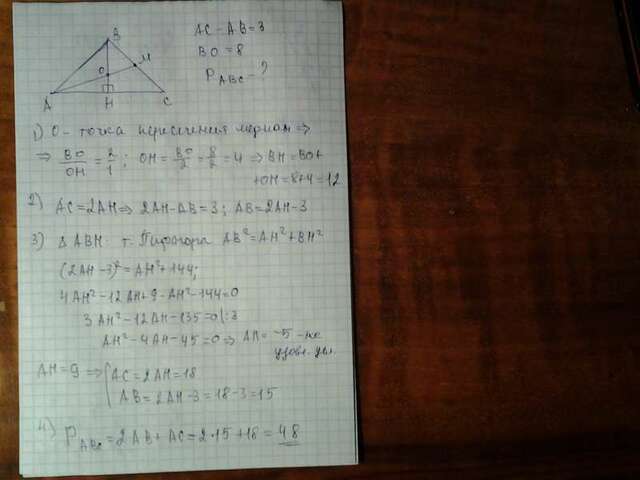 B
O
M
A
H
C
AC - AB = 3
BO = 8
P_ABC - ?
1) O - точка пересечения медиан ⇒
⇒ BO/OH = 2/1 ; OH = BO/2 = 8/2 = 4 ⇒ BH = BO +
+ OH = 8 + 4 = 12
2) AC = 2AH ⇒ 2AH - AB = 3 ; AB = 2AH - 3
3) Δ ABH т. Пифагора AB² = AH² + BH²
(2AH - 3)² = AH² + 144;
4AH² - 12AH + 9 - AH² - 144 = 0
3AH² - 12AH - 135 = 0 |: 3
AH² - 4AH - 45 = 0 ⇒ AH = -5 - не
удовл. усл.
AH = 9 ⇒ { AC = 2AH = 18
AB = 2AH - 3 = 18 - 3 = 15
4) P_ABC = 2AB + AC = 2·15 + 18 = 48